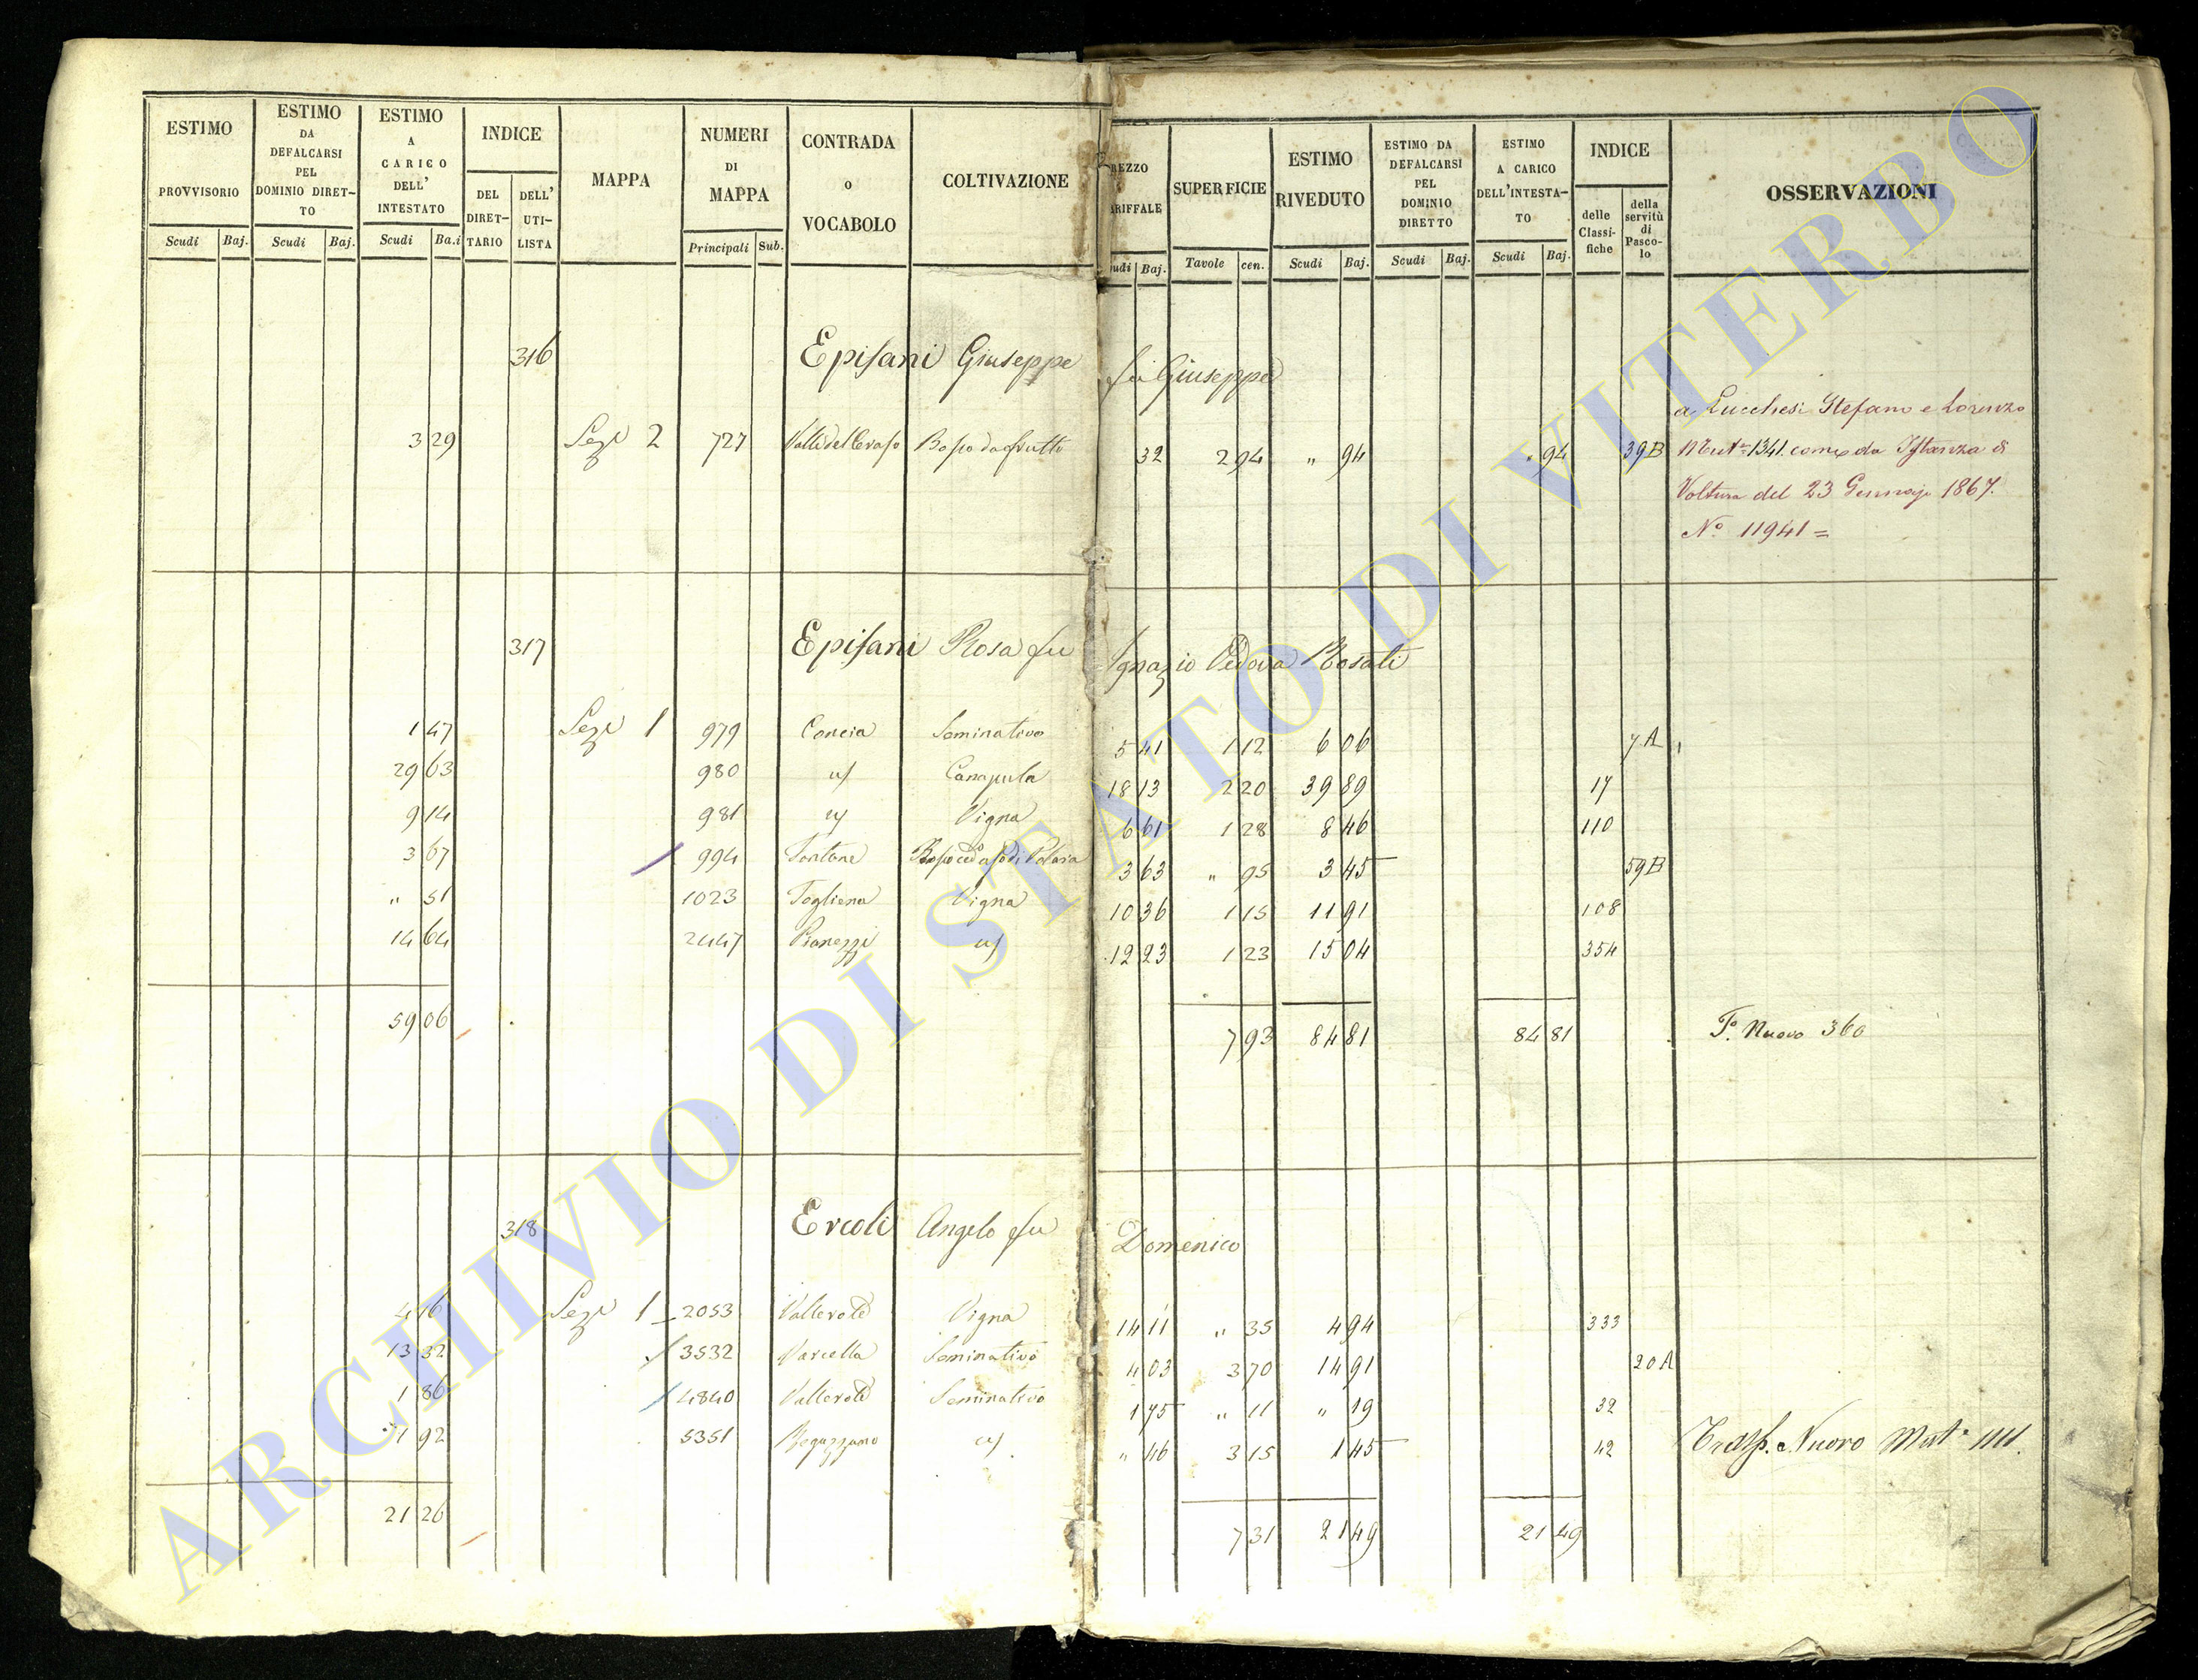 ESTIMO PROVVISORIO
Scudi Baj.
ESTIMO DA DEFALCARSI PEL DOMINIO DIRET-TO
Scudi Baj.
ESTIMO A CARICO DELL' INTESTATO
Scudi Ba.i
INDICE
DEL DIRET-TARIO
DELL' UTI-LISTA
MAPPA
NUMERI DI MAPPA
Principali Sub.
CONTRADA o VOCABOLO
COLTIVAZIONE
REZZO ARIFFALE
udi Baj.
SUPERFICIE
Tavole cen.
ESTIMO RIVEDUTO
Scudi Baj.
ESTIMO DA DEFALCARSI PEL DOMINIO DIRETTO
Scudi Baj.
ESTIMO A CARICO DELL'INTESTA-TO
Scudi Baj.
INDICE
delle Classi-fiche
della servitù di Pasco-lo
OSSERVAZIONI
316 Epifani Giuseppe fu Giuseppe
3 29 Sez. 2 727 Bosco da frutto 32 2 94 " 94 " 94 39B
a Lucchesi Stefano e Lorenzo
1341 come da Istanza di
Voltura del 23 Gennajo 1867.
N.o 11941 =
317 Epifani Rosa fu Ignazio Vedova Rosati
1 47 Sez. 1 979 Concia Seminativo 5 41 1 12 6 06 7A
29 63 980 Canapula 18 13 2 20 39 89 17
9 14 981 Vigna 6 61 1 28 8 46 110
3 67 994 Fontane 3 63 " 95 3 45 59B
" 51 1023 Togliena Vigna 10 36 1 15 11 91 108
14 64 2447 Pianezzi 12 23 1 23 15 04 354
59 06 7 93 84 81 84 81 F.o Nuovo 360
318 Ercoli Angelo fu Domenico
4 16 Sez. 1 2053 Vallerote Vigna 14 11 " 35 4 94 333
13 32 3532 Varcella Seminativo 4 03 3 70 14 91 20A
1 86 4840 Vallerote Seminativo 1 75 " 11 " 19 32
1 92 5351 " 46 3 15 1 45 42 Trasp. Nuovo
21 26 7 31 21 49 21 49
ARCHIVIO DI STATO DI VITERBO